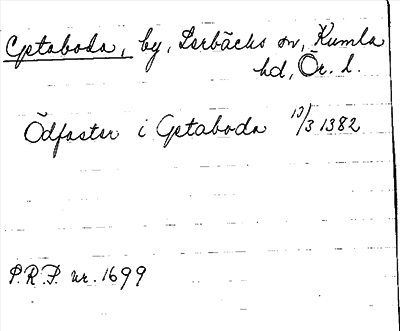 Getaboda, by, Lerbäcks sn, Kumla
hd, Ör. l.
Ödfaster i Getaboda 13/3 1382
S.R.P. nr. 1699